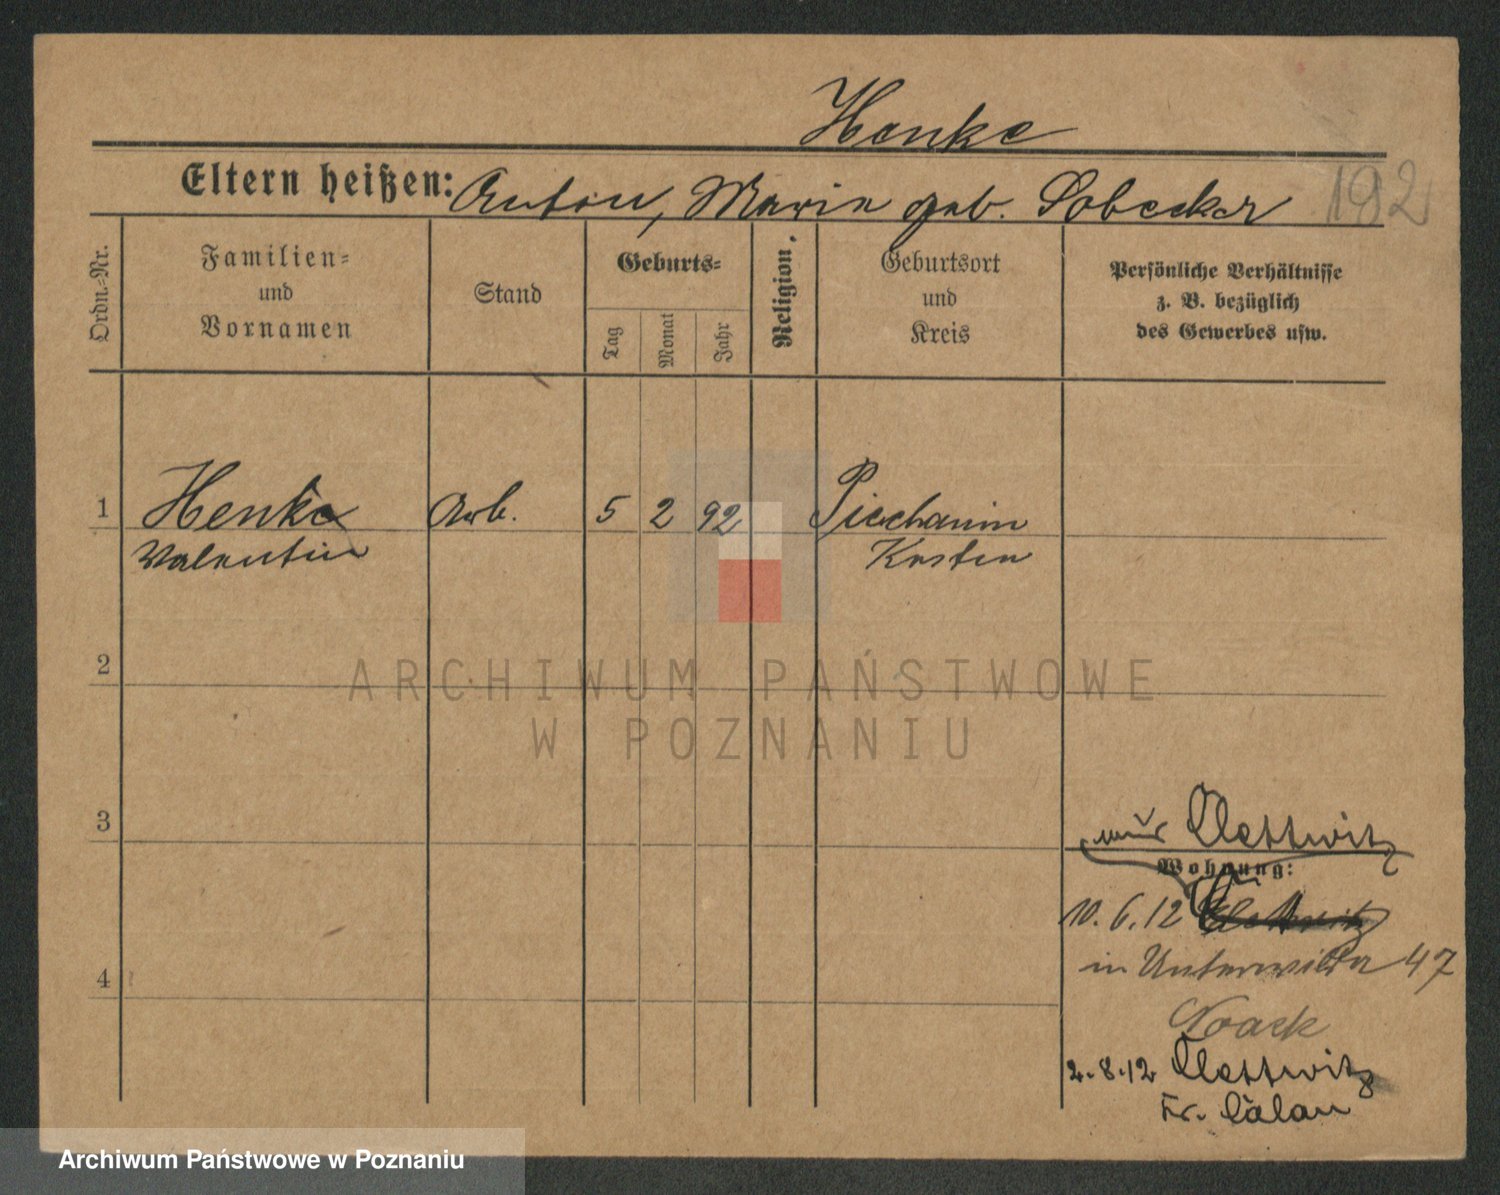 Henke
Eltern heißen: Anton, Maria geb. Sobecker
192
Ordn.-Nr.
Familien-
und
Vornamen
Stand
Geburts-
Tag
Monat
Jahr
Religion.
Geburtsort
und
Kreis
Persönliche Verhältnisse
z. B. bezüglich
des Gewerbes usw.
1 Henke Arb. 5 2 92 Piechanin
Valentin Kosten
2
ARCHIWUM PAŃSTWOWE
W POZNANIU
3
Clettwitz
Wohnung:
10.6.12
in Unterwilda 47
4
Noack
2.8.12 Clettwitz
Kr. Calau
Archiwum Państwowe w Poznaniu